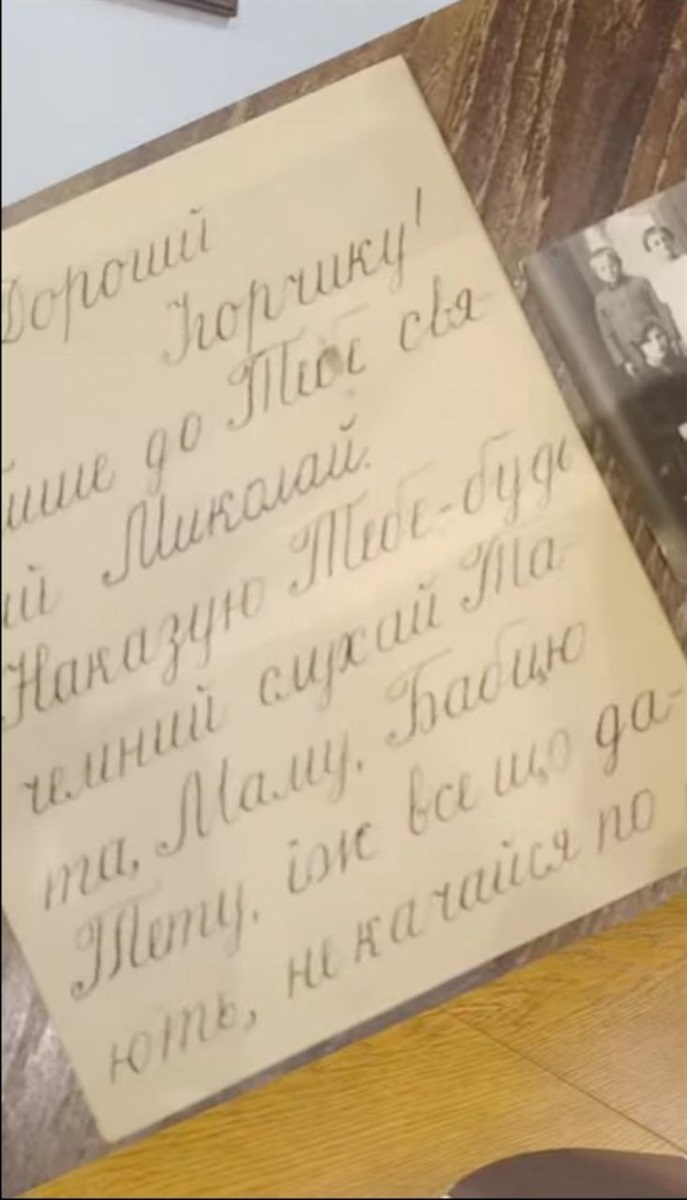 Дорогий
Ігорчику!
пише до Тебе свя-
ий Миколай.
Наказую Тебе-будь
чемний слухай Та-
та, Маму, Бабцю
Тету, їж все що да-
ють, не качайся по